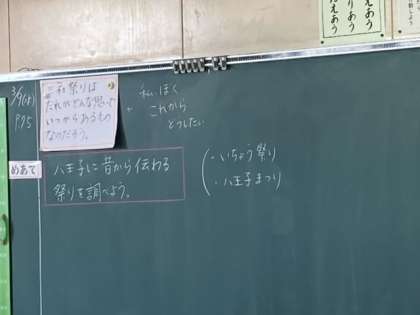 3/9(水)
P.75
三和祭りは
だれがどんな思いで
いつからあるもの
なのだろう。
私、ぼく
これから
どうしたい
めあて
八王子に昔から伝わる
祭りを調べよう。
・いちょう祭り
・八王子まつり